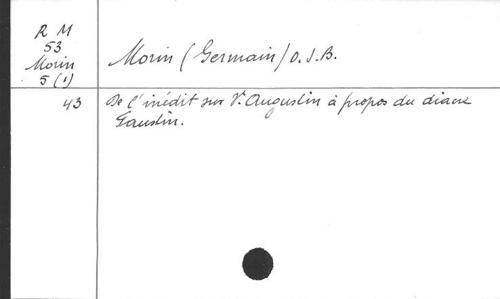 R M
53
Morin
5 (1)
Morin (Germain) O.S.B.
43
De l'inédit sur S. Augustin à propos du diacre
Faustin.